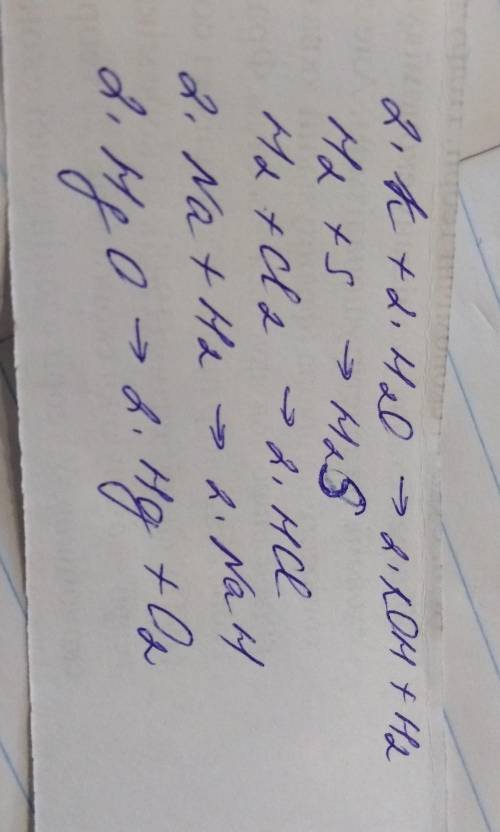 2. K + 2. H2O → 2. KOH + H2
H2 + S → H2S
H2 + Cl2 → 2. HCl
2. Na + H2 → 2. NaH
2. HgO → 2. Hg + O2